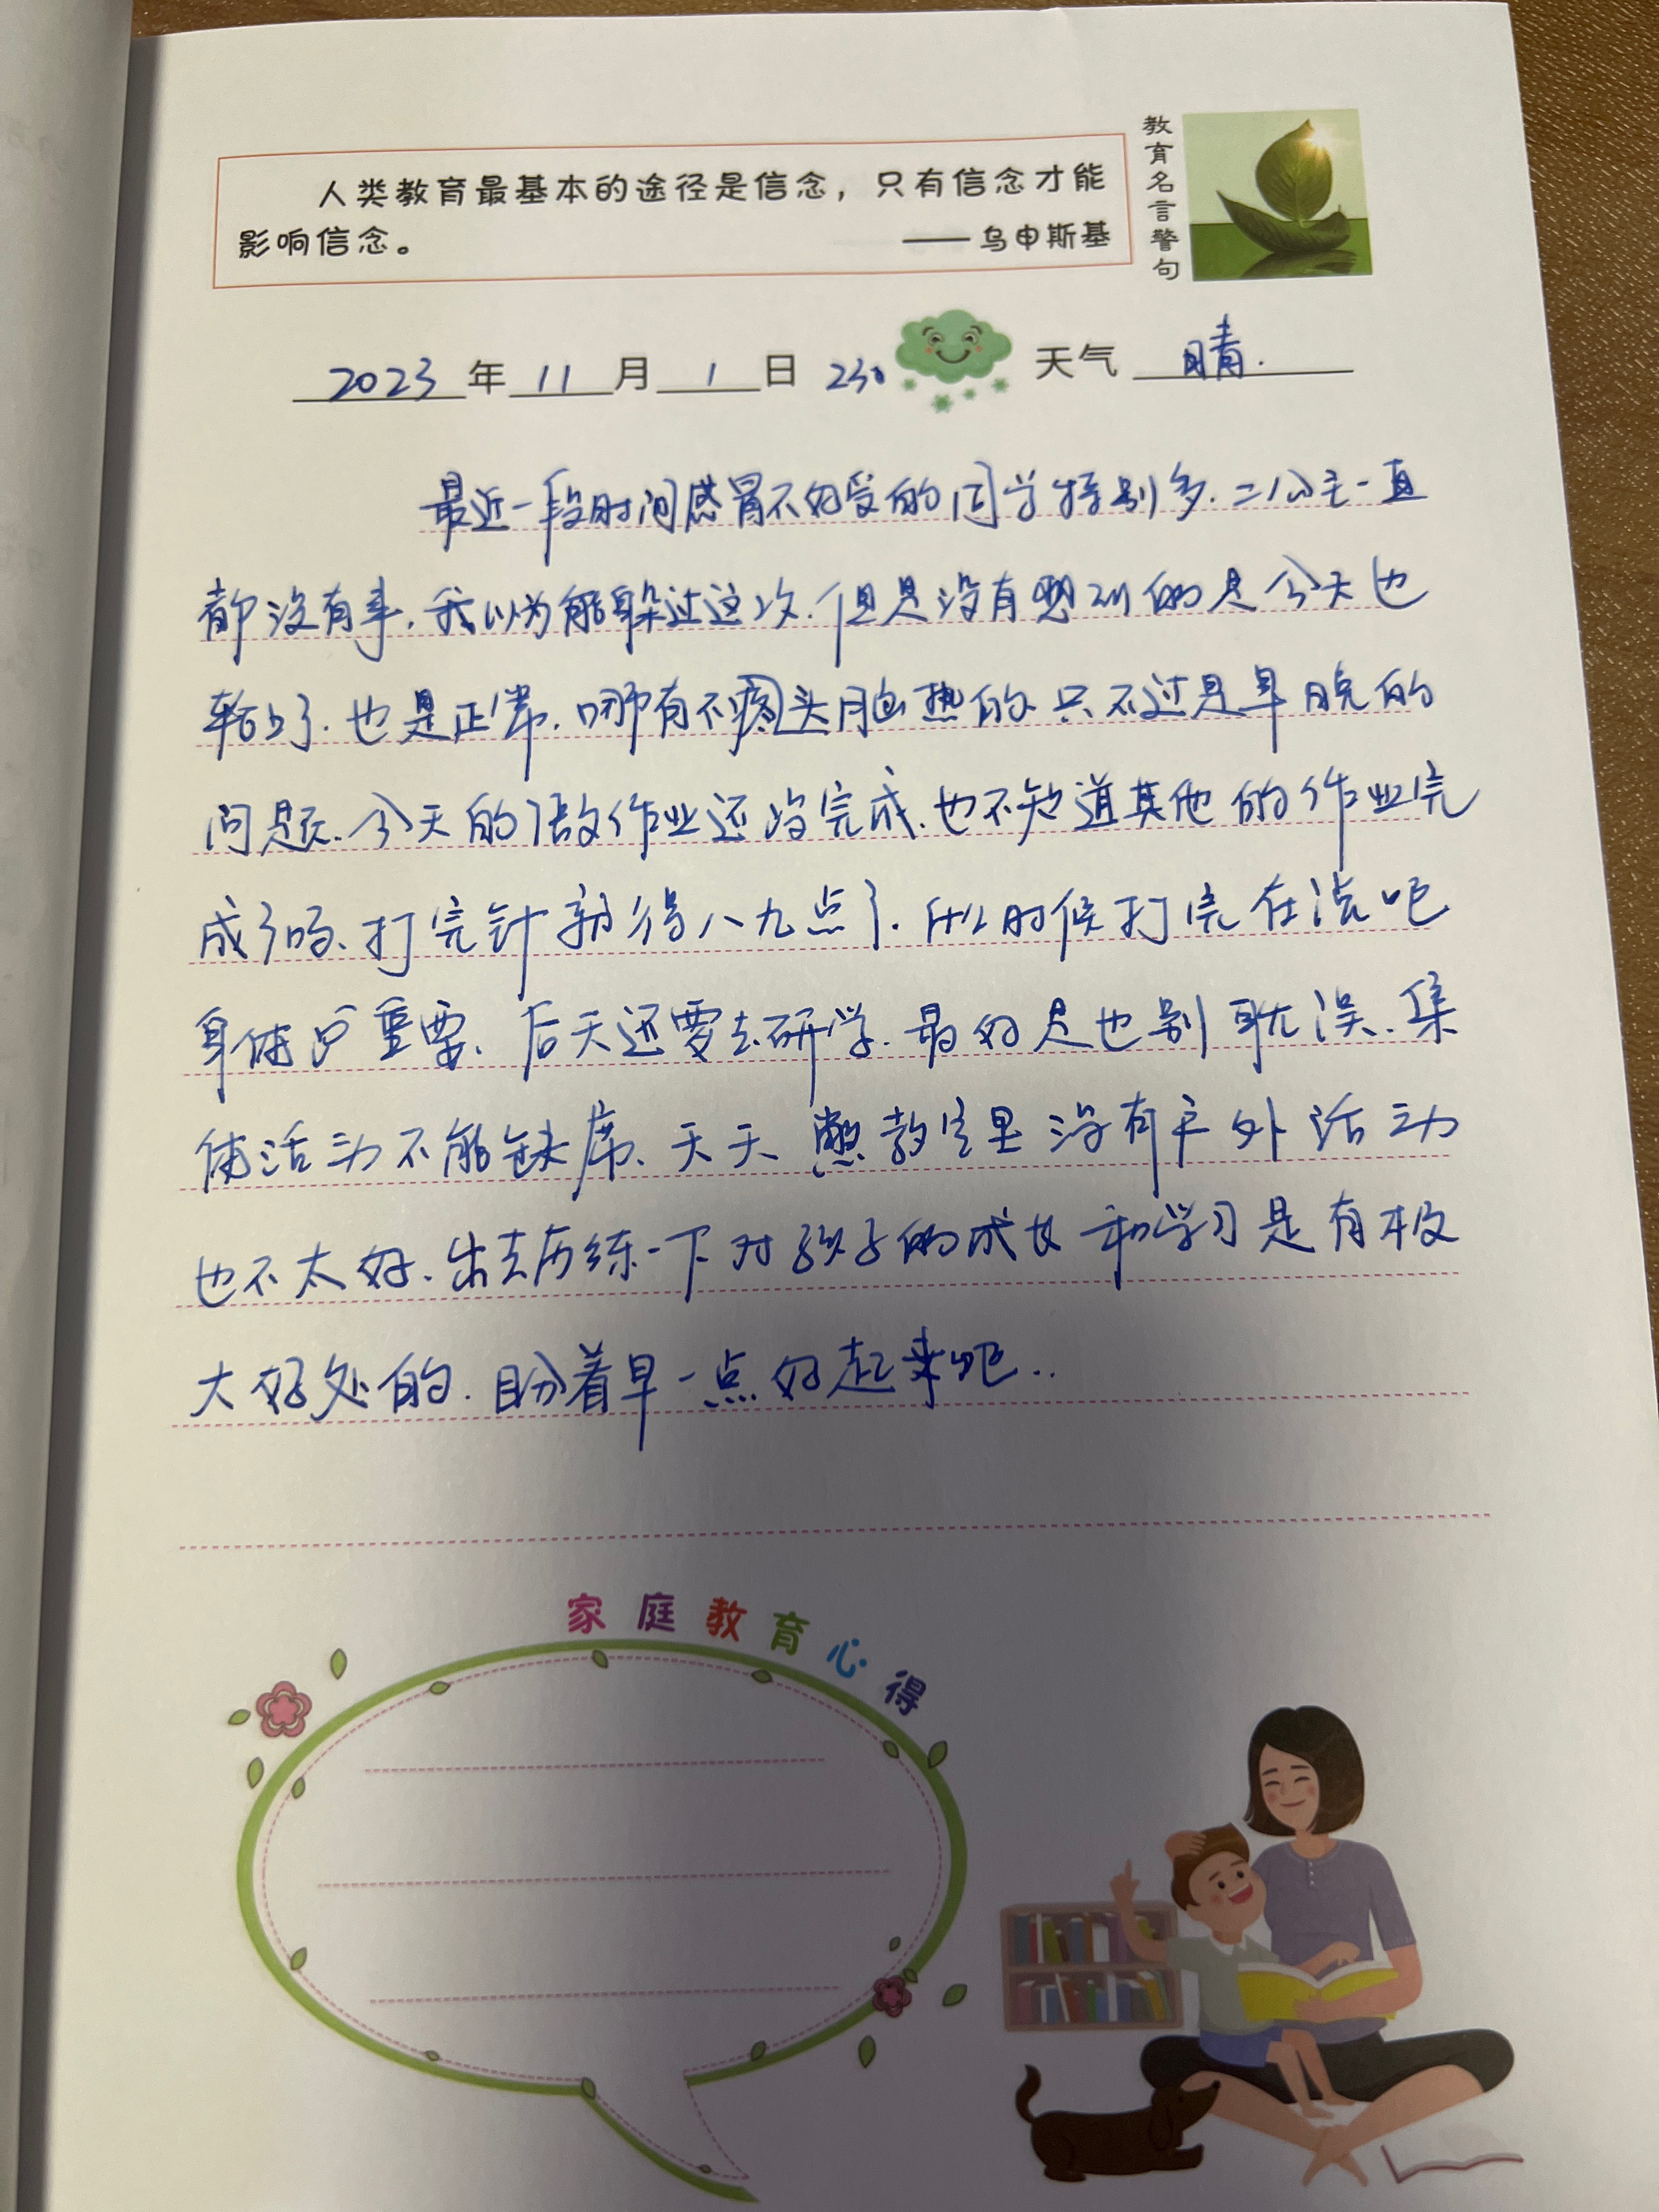 人类教育最基本的途径是信念，只有信念才能
影响信念。 ——乌申斯基
教育名言警句
2023年11月1日 230 天气 晴.
最近一段时间感冒不好受的同学特别多.二公主一直
都没有事.我以为能躲过这次.但是没有想到的是今天也
轮上了.也是正常.哪有不疼头脑热的.只不过是早晚的
问题.今天的作业还没完成.也不知道其他的作业完
成了吗、打完针就得八九点了.什么时候打完在说吧
身体最重要、后天还要去研学.最好是也别耽误.集
体活动不能缺席、天天憋教室里没有户外活动
也不太好.出去历练一下对孩子的成长和学习是有极
大好处的.盼着早一点好起来吧..
家庭教育心得